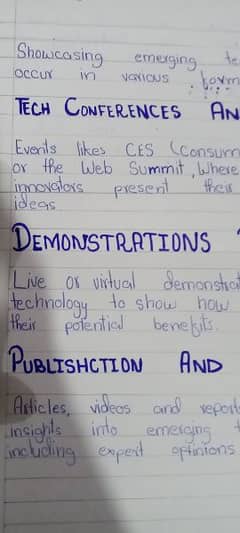 Showcasing emerging te
occur in various form
TECH CONFERENCES AN
Events likes CES (Consum
or the Web Summit, Where
innovators present their
ideas
DEMONSTRATIONS
Live or virtual demonstrat
technology to show how
their potential benefits.
PUBLISHCTION AND
Articles, videos and report
insights into emerging t
including expert opinions